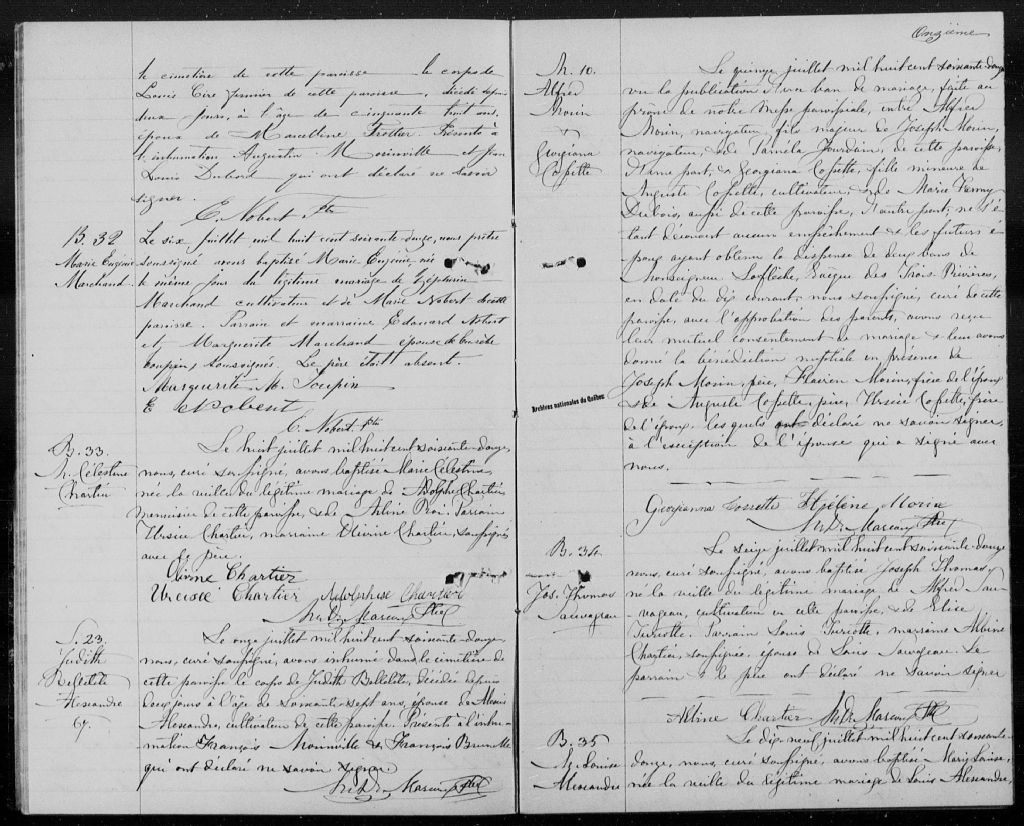 le cimetière de cette paroisse le corps de
Louis Cire fermier de cette paroisse, décédé depuis
deux jours, à l'âge de cinquante huit ans,
époux de Marcelline Trottier. Présents à
l'inhumation Augustin Moinville et Jean
Louis Dubord qui ont déclaré ne savoir
signer.
E. Nobert Ptre
B. 32
Marie Eugénie
Marchand
Le six juillet mil huit cent soixante douze, nous prêtre
soussigné avons baptisé Marie Eugénie, née
le même jour du légitime mariage de Zéphirin
Marchand cultivateur et de Marie Nobert de cette
paroisse. Parrain et marraine Edouard Nobert
et Marguerite Marchand épouse de
soussignés. Le père était absent.
Marguerite M. Toupin
E Nobert
E. Nobert Ptre
B. 33.
M. Célestine
Chartier
Le huit juillet mil huit cent soixante-douze,
nous, curé soussigné, avons baptisé Marie Célestine,
née la veille du légitime mariage de Adolphe Chartier,
menuisier de cette paroisse, & de Arline Proi. Parrain
Ursice Chartier, marraine Olivine Chartier, soussignés
avec le père.
Olivine Chartier
Urcisse Chartier Adolphise Chartier
Mcd. Marcoux Ptre
S. 23.
Judith
Bellelile
Alexandre
67.
Le onze juillet mil huit cent soixante-douze,
nous, curé soussigné, avons inhumé dans le cimetière de
cette paroisse le corps de Judith Bellelile, décédée depuis
deux jours à l'âge de soixante-sept ans, épouse de Alexis
Alexandre, cultivateur de cette paroisse. Présents à l'inhu-
mation François Moinville & François Brunelle
qui ont déclaré ne savoir signer.
Mcd. Marcoux Ptre
Onzième
M. 10.
Alfred
Morin
&
Georgiana
Cossette
Le quinze juillet mil huit cent soixante-douze
vu la publication d'un ban de mariage, faite au
prône de notre Messe paroissiale, entre Alfred
Morin, navigateur, fils majeur de Joseph Morin,
navigateur, & de Paméla Jourdain, de cette paroisse,
d'une part, & Georgiana Cossette, fille mineure de
Auguste Cossette, cultivateur, & de Marie Fanny
Dubois, aussi de cette paroisse, d'autre part; ne s'é-
tant découvert aucun empêchement & les futurs é-
poux ayant obtenu la dispense de deux bans de
Monseigneur Laflèche, Évêque des Trois-Rivières,
en date du dix courant, nous soussigné, curé de cette
paroisse, avec l'approbation des parents, avons reçu
leur mutuel consentement de mariage & leur avons
donné la bénédiction nuptiale en présence de
Joseph Morin, père, Flavien Morin, frère de l'époux
& de Auguste Cossette, père, Ursice Cossette, frère
de l'épouse, lesquels ont déclaré ne savoir signer,
à l'exception de l'épouse qui a signé avec
nous.
Georgianna Cossette Hélène Morin
Mcd. Marcoux Ptre
Archives nationales du Québec
B. 34
Jos. Thomas
Sauvageau
Le seize juillet mil huit cent soixante-douze
nous, curé soussigné, avons baptisé Joseph Thomas,
né la veille du légitime mariage de Alfred Sau-
vageau, cultivateur en cette paroisse, & de Elise
Turcotte. Parrain Louis Turcotte, marraine Albine
Chartier, soussignée, épouse de Louis Sauvageau. Le
parrain & le père ont déclaré ne savoir signer
Albine Chartier Mcd. Marcoux Ptre
B. 35
M. Louise
Alexandre
Le dix-neuf juillet mil huit cent soixante-
douze, nous, curé soussigné, avons baptisé Marie Louise,
née la veille du légitime mariage de Louis Alexandre,